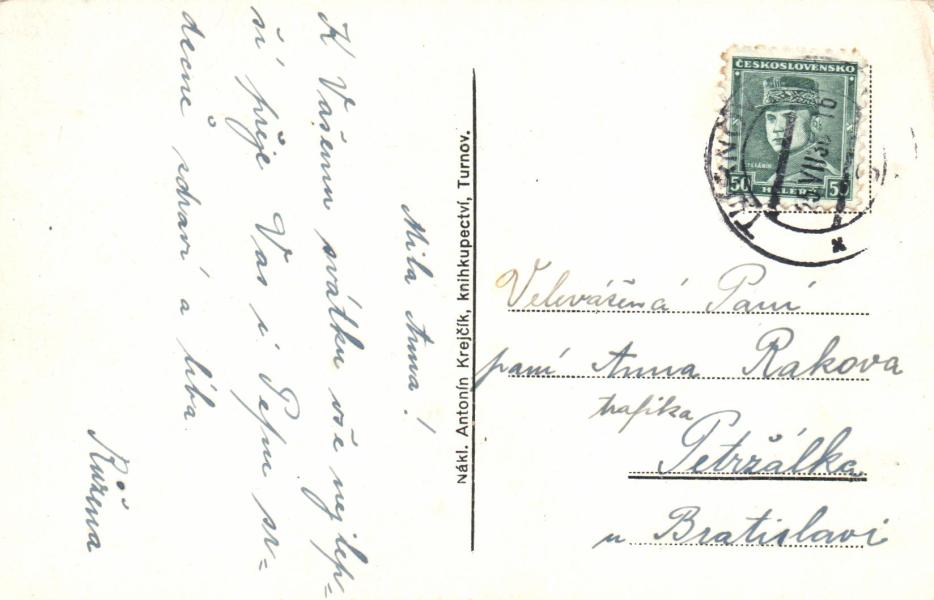 Milá Anna!
K Vašemu svátku vše nejlep=
ší přeje Vas i Pepu sr=
dečně zdraví a líba
Růžena
Nákl. Antonín Krejčík, knihkupectví, Turnov.
ČESKOSLOVENSKO
50 HALÉRŮ 50
VII 36 16
Velevážená Paní
paní Anna Rakova
trafika
Petržálka
u Bratislavi